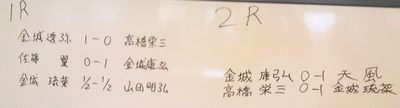 1R
金城透弥 1-0 高橋栄三
佐藤 翼 0-1 金城康弘
金城 琉葵 ½-½ 山田明弘
2R
金城 康弘 0-1 天風
高橋 栄三 0-1 金城琉葵